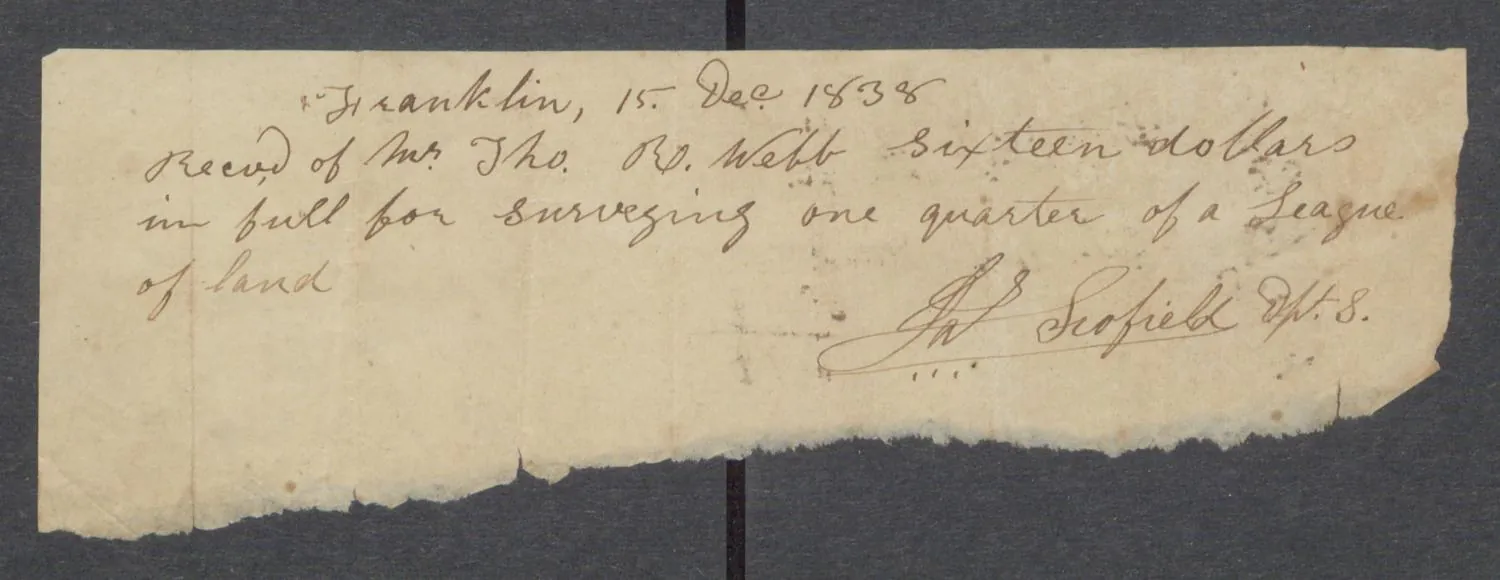 Franklin, 15. Dec. 1838
Recvd of Mr. Tho. R. Webb sixteen dollars
in full for surveying one quarter of a League
of land
Jas Scofield Dpt. S.